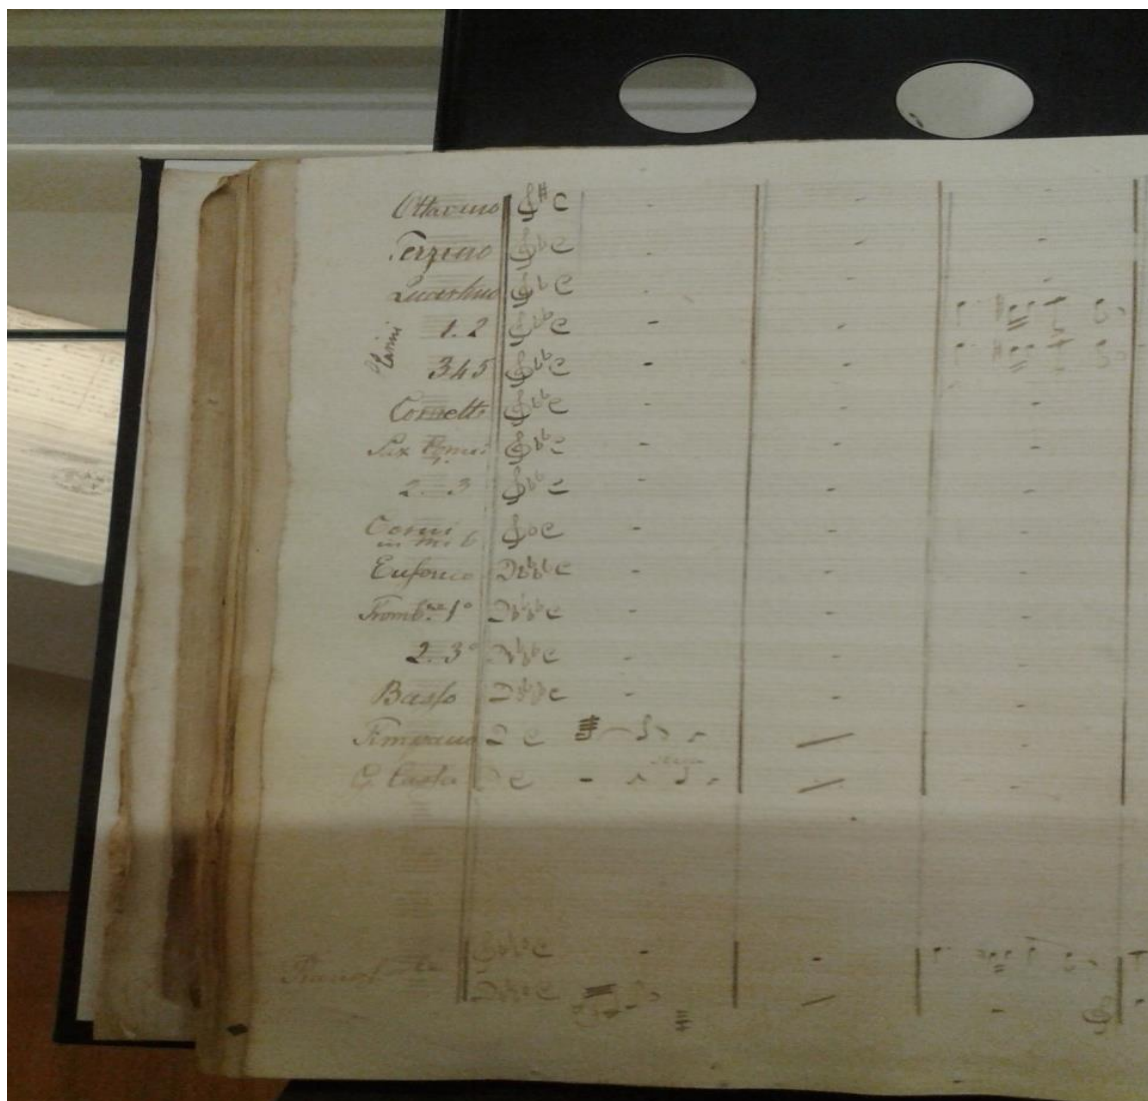 Ottavino
Terzino
Quartino
Clarini
1. 2
3 4 5
Cornetti
Sax
1.
2. 3
Corni
in Mi b
Eufonio
Tromb.ne 1°
2. 3°
Basso
Timpano
G. Cassa
Pianof.te